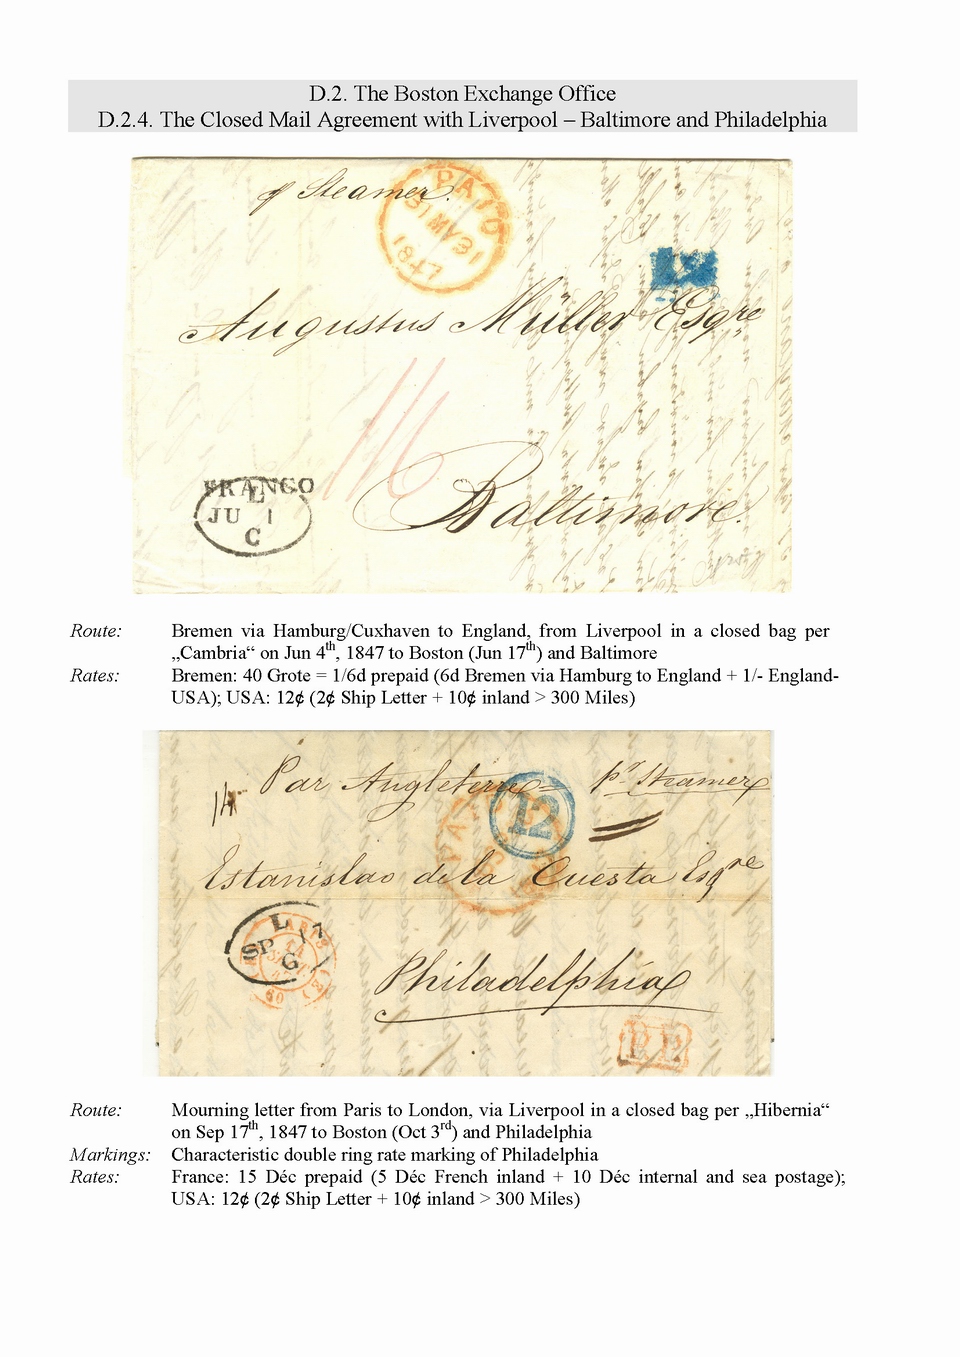 D.2. The Boston Exchange Office
D.2.4. The Closed Mail Agreement with Liverpool – Baltimore and Philadelphia
p Steamer.
PAID
31 MY 31
1847
12
Augustus Müller Esqre
1/6
Baltimore.
FRANCO
L
JU 1
C
Route: Bremen via Hamburg/Cuxhaven to England, from Liverpool in a closed bag per
„Cambria“ on Jun 4th, 1847 to Boston (Jun 17th) and Baltimore
Rates: Bremen: 40 Grote = 1/6d prepaid (6d Bremen via Hamburg to England + 1/- England-
USA); USA: 12¢ (2¢ Ship Letter + 10¢ inland > 300 Miles)
Par Angleterre = pr Steamer
12
PAID
Estanislao de la Cuesta Esqre
L
SP 17
G
PARIS
(60)
Philadelphia
P.P.
Route: Mourning letter from Paris to London, via Liverpool in a closed bag per „Hibernia“
on Sep 17th, 1847 to Boston (Oct 3rd) and Philadelphia
Markings: Characteristic double ring rate marking of Philadelphia
Rates: France: 15 Déc prepaid (5 Déc French inland + 10 Déc internal and sea postage);
USA: 12¢ (2¢ Ship Letter + 10¢ inland > 300 Miles)